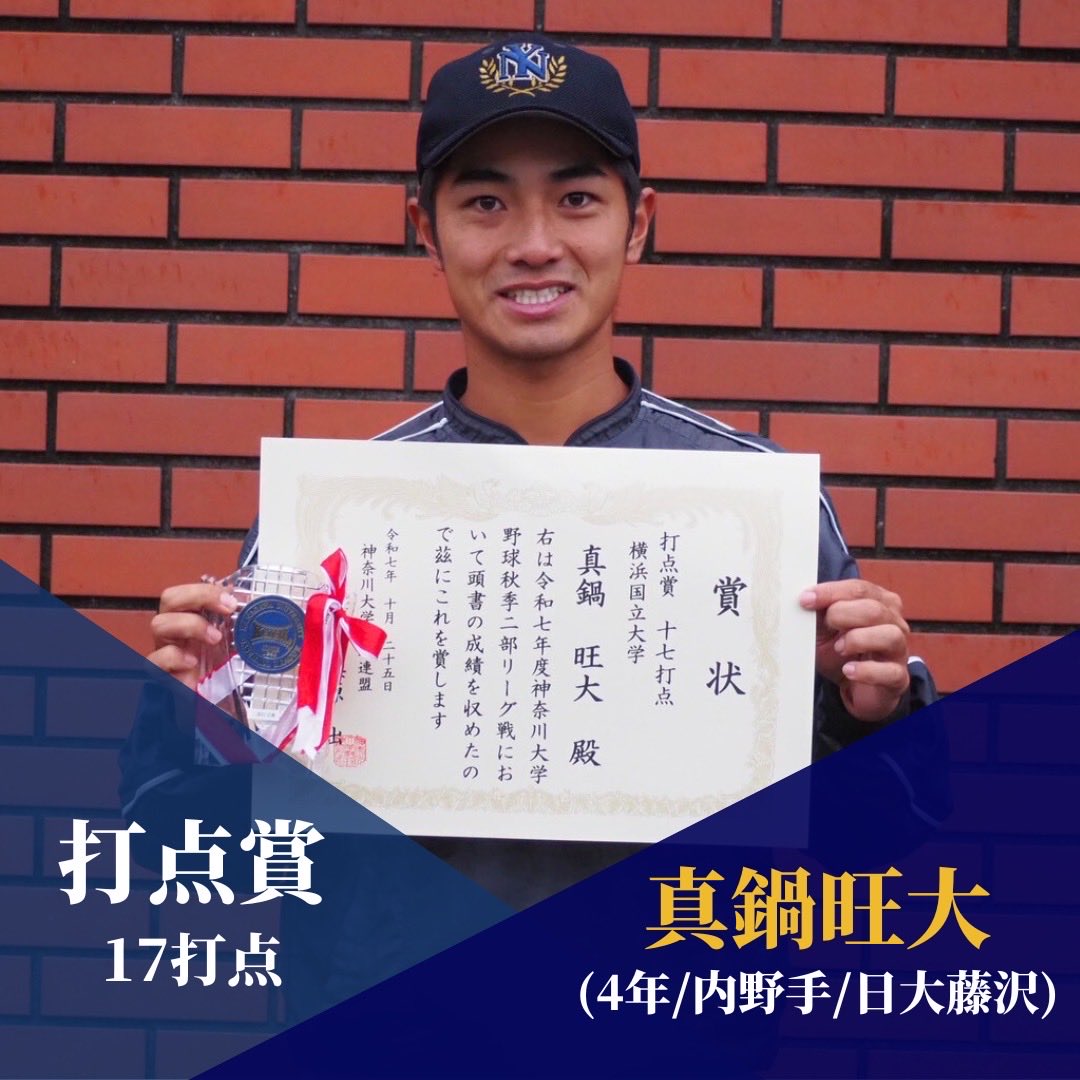 賞状
打点賞 十七打点
横浜国立大学
真鍋 旺大 殿
右は令和七年度神奈川大学
野球秋季二部リーグ戦にお
いて頭書の成績を収めたの
で茲にこれを賞します
令和七年 十月 二十五日
神奈川大学
連盟
打点賞
17打点
真鍋旺大
(4年/内野手/日大藤沢)